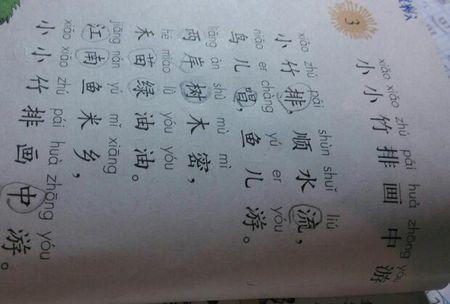 3
xiǎo xiǎo zhú pái huà zhōng yóu
小小竹排画中游
xiǎo zhú pái shùn shuǐ liú
小竹排，顺水流，
niǎo er chàng yú er yóu
鸟儿唱，鱼儿游。
liǎng àn shù mù mì
两岸树木密，
hé miáo lǜ yóu yóu
禾苗绿油油。
jiāng nán yú mǐ xiāng
江南鱼米乡，
xiǎo xiǎo zhú pái huà zhōng yóu
小小竹排画中游。